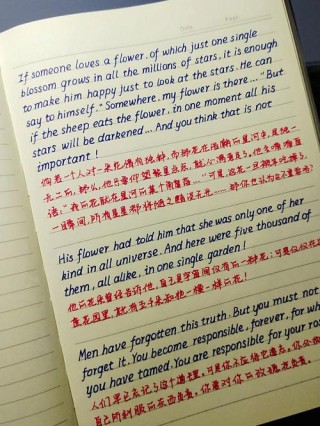 Date Page
If someone loves a flower, of which just one single
blossom grows in all the millions of stars, it is enough
to make him happy just to look at the stars. He can
say to himself, "Somewhere, my flower is there..." But
if the sheep eats the flower, in one moment all his
stars will be darkened... And you think that is not
important!
倘若一个人对一朵花情有独钟，而那花在浩瀚的星河中，是独一
无二的，那么，他只要仰望繁星点点，就心满意足了。他会喃喃自
语："我的花就在星河的某个角落……"可是，这花一旦被羊吃掉了，
一瞬间，所有星星都将随之黯淡无光……那你也认为这不重要吗？
His flower had told him that she was only one of her
kind in all universe. And here were five thousand of
them, all alike, in one single garden!
他的花朵曾经告诉他，自己是宇宙间仅有的一种花；可是仅仅在这
座花园里，就有五千朵和他一模一样的花！
Men have forgotten this truth. But you must not
forget it. You become responsible, forever, for wh
you have tamed. You are responsible for your ros
人们早已忘记了这个道理，可是你不应将它遗忘。你必须
自己所驯服的东西负责，你要对你的玫瑰花负责。